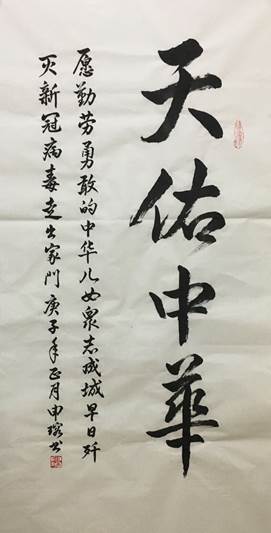 天佑中華
愿勤劳勇敢的中华儿女众志成城早日歼
灭新冠病毒走出家门 庚子年正月申瑢书